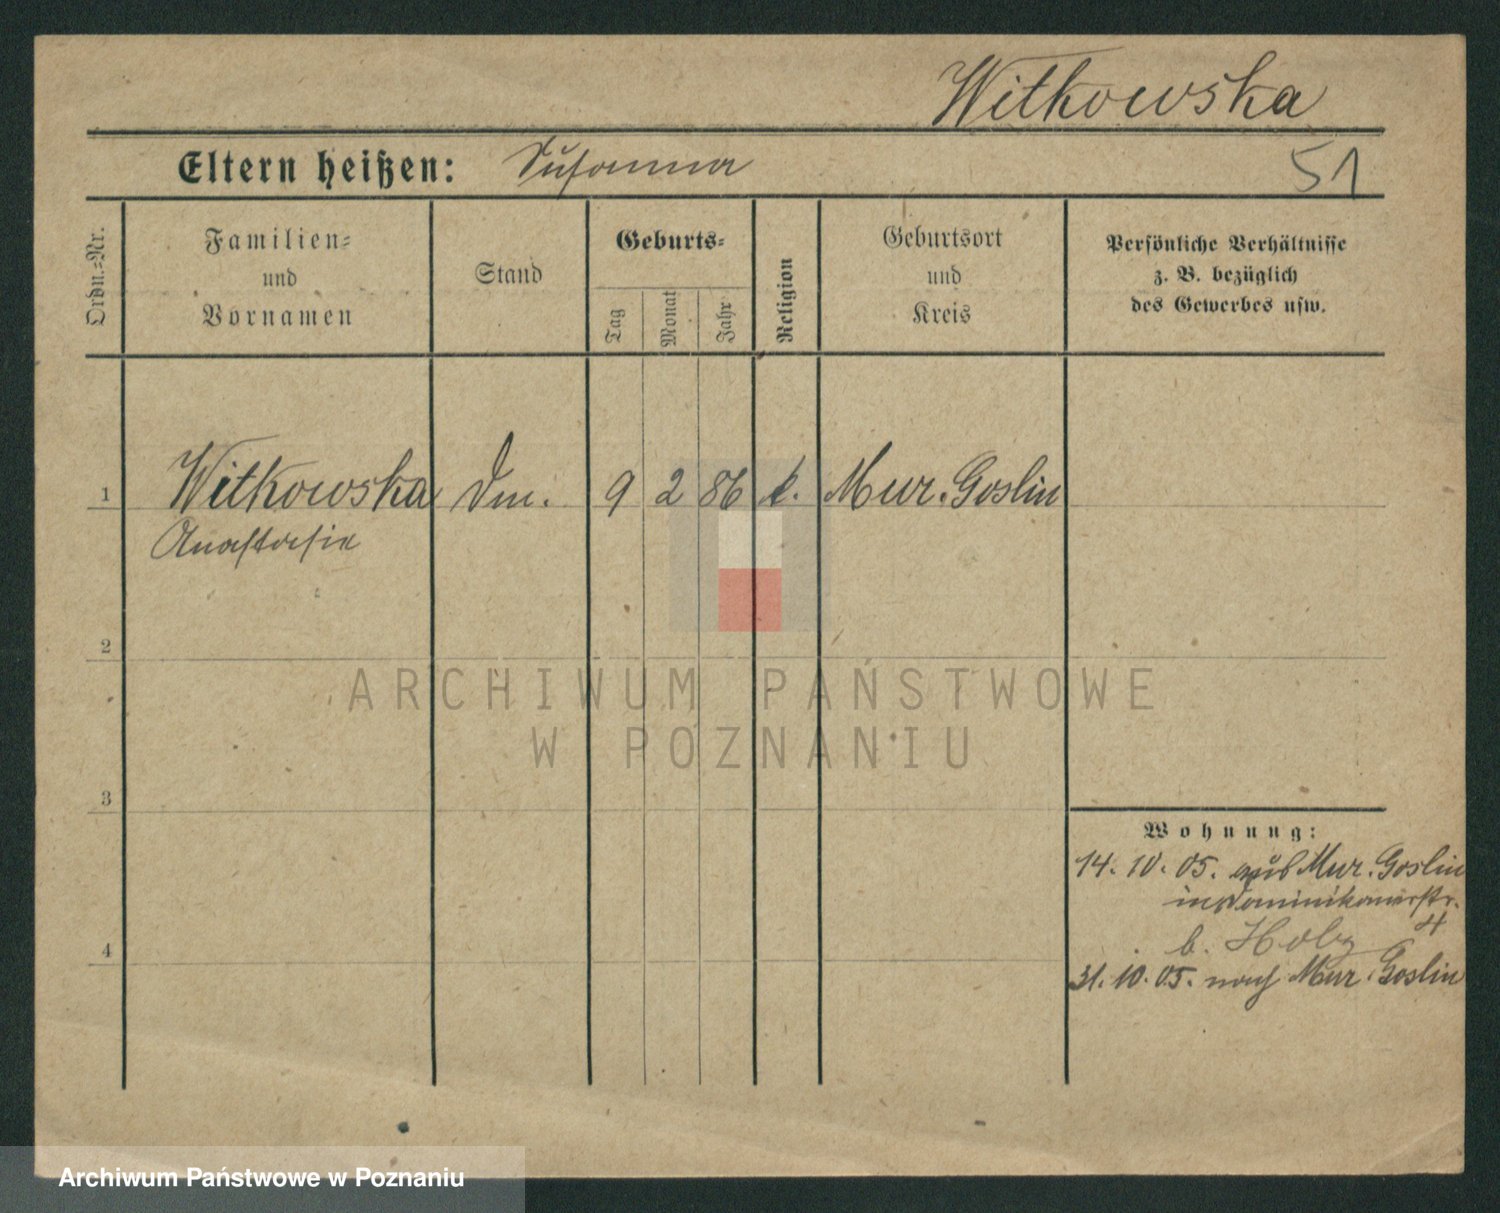 Witkowska
Eltern heißen: Susanna
51
Ordn.-Nr.
Familien-
und
Vornamen
Stand
Geburts-
Tag
Monat
Jahr
Religion
Geburtsort
und
Kreis
Persönliche Verhältnisse
z. B. bezüglich
des Gewerbes usw.
1 Witkowska Dm. 9 2 86 k. Mur. Goslin
Anastasia
2
3
4
Wohnung:
14. 10. 05. aus Mur. Goslin
in Dominikanerstr.
4
b.
31. 10. 05. nach Mur. Goslin
ARCHIWUM PAŃSTWOWE
W POZNANIU
Archiwum Państwowe w Poznaniu